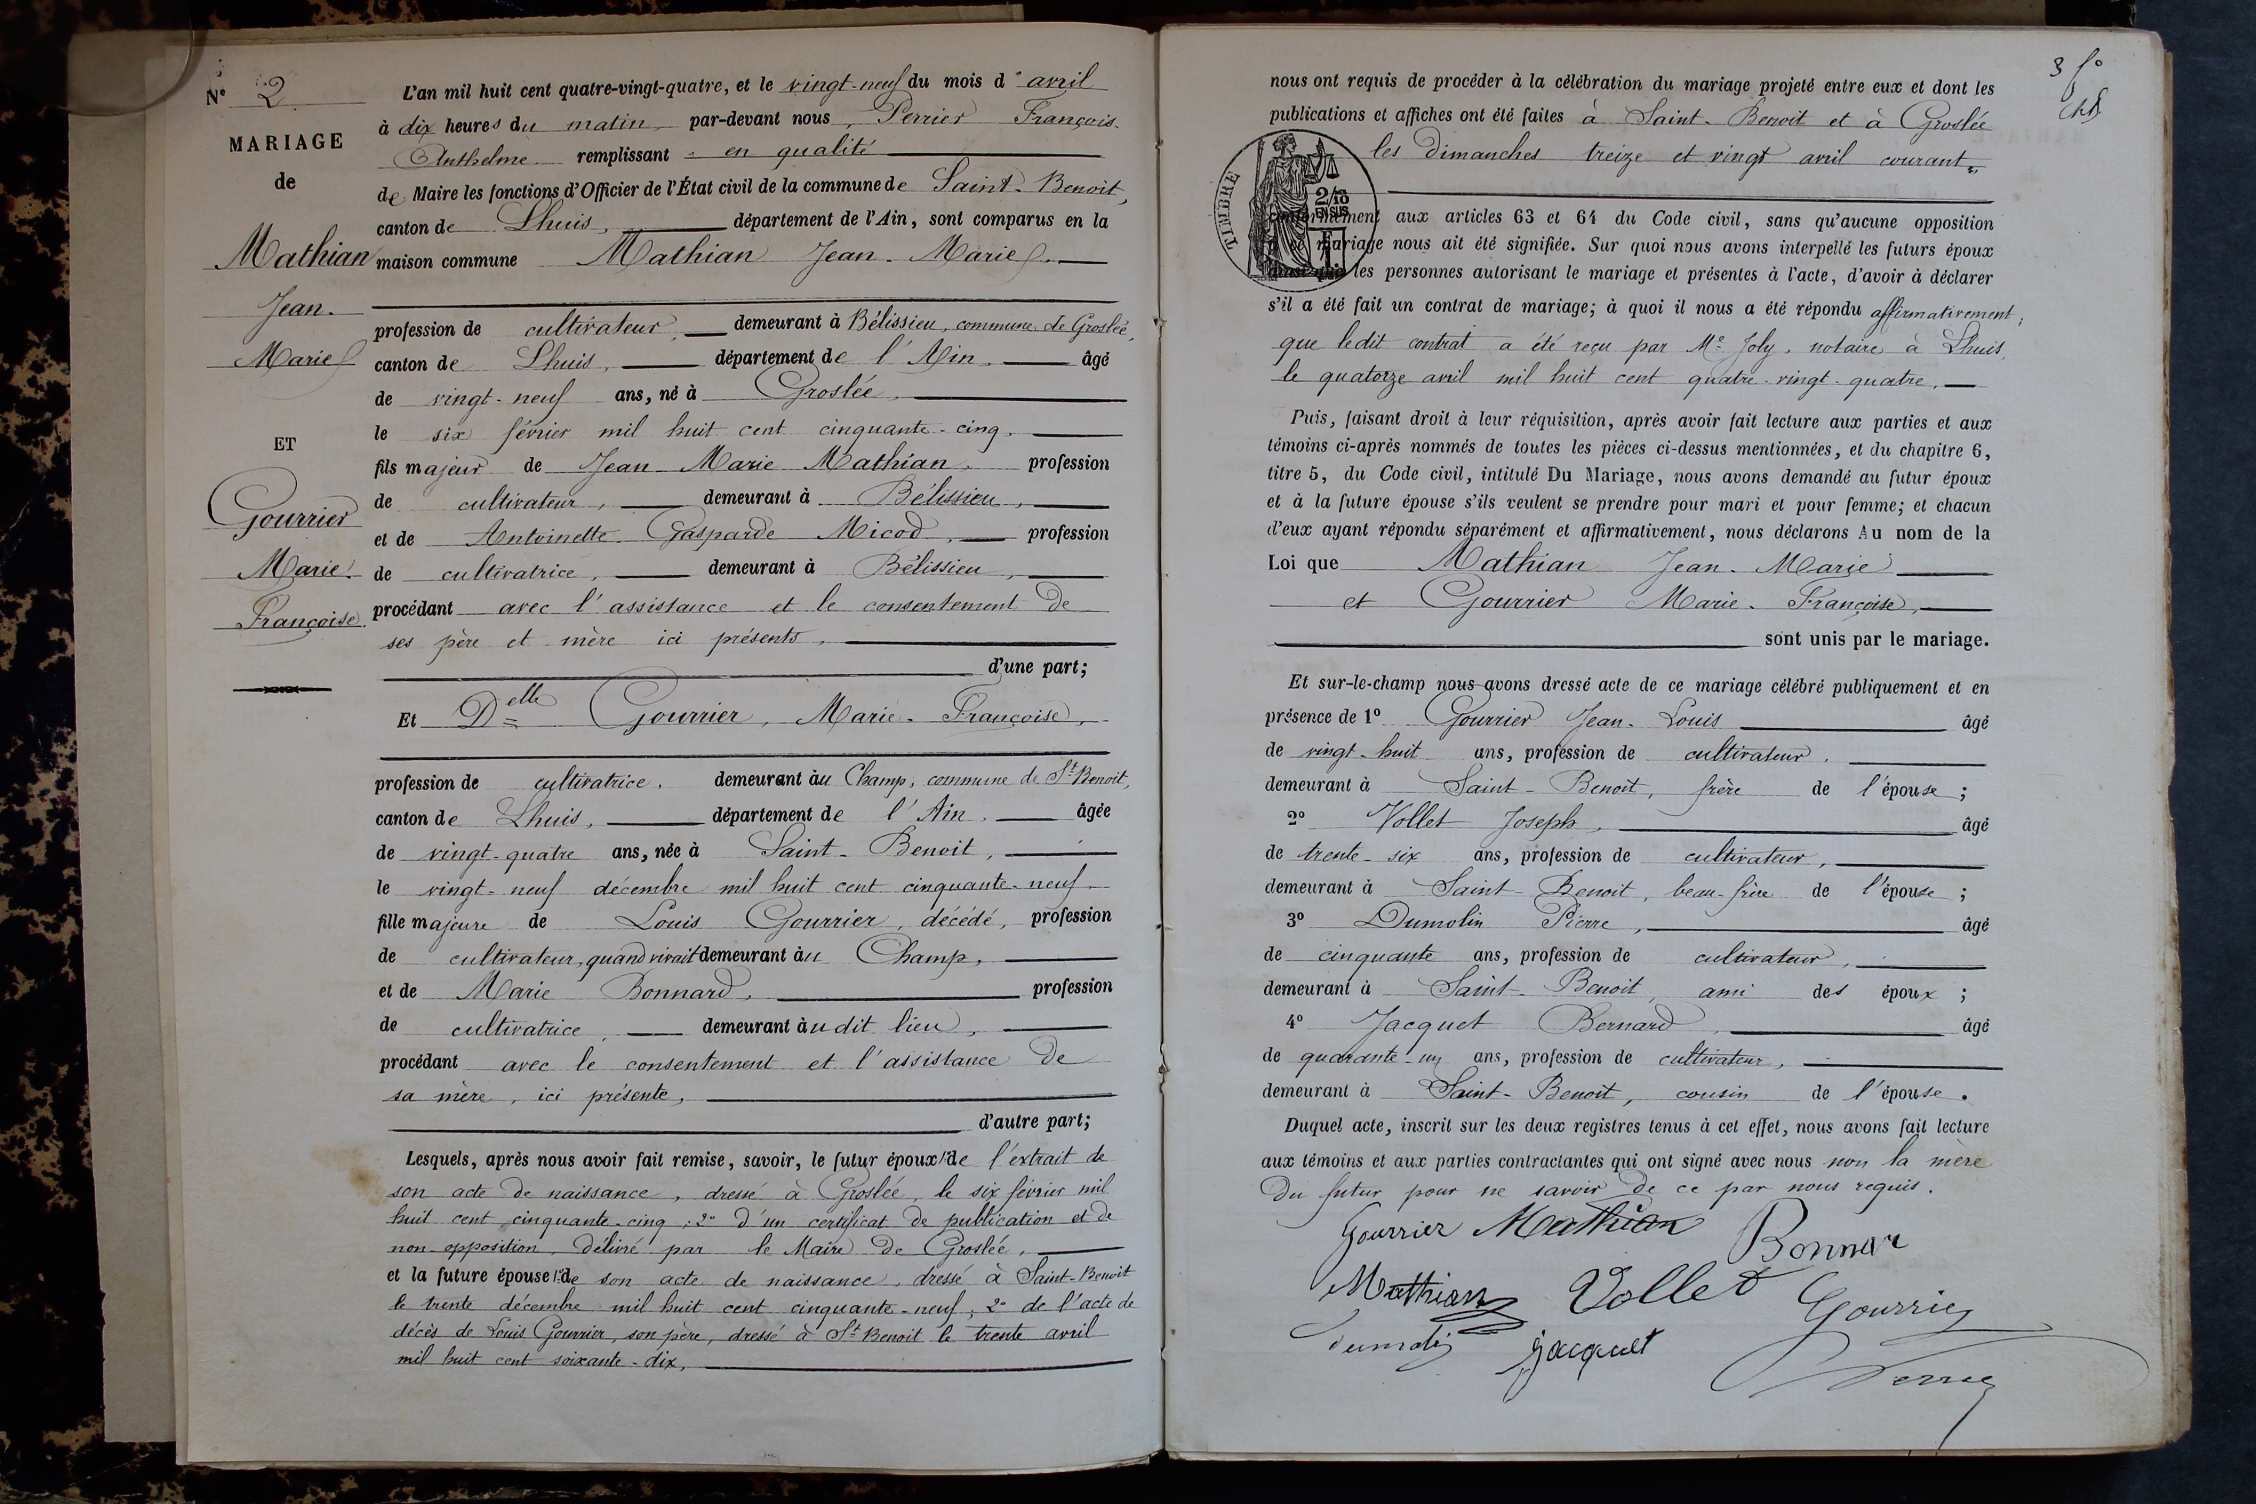 N° 2
MARIAGE
de
Mathian
Jean.
Marie
ET
Gourrier
Marie
Françoise
L'an mil huit cent quatre-vingt-quatre, et le vingt-neuf du mois d'avril
à dix heures du matin, par-devant nous, Perrier François
Anthelme remplissant en qualité
de Maire les fonctions d'Officier de l'État civil de la commune de Saint-Benoit,
canton de Lhuis, département de l'Ain, sont comparus en la
maison commune Mathian Jean-Marie,
profession de cultivateur, demeurant à Bélissieu, commune de Groslée,
canton de Lhuis, département de l'Ain, âgé
de vingt-neuf ans, né à Groslée,
le six février mil huit cent cinquante-cinq,
fils majeur de Jean Marie Mathian, profession
de cultivateur, demeurant à Bélissieu,
et de Antoinette Gasparde Micod, profession
de cultivatrice, demeurant à Bélissieu,
procédant avec l'assistance et le consentement de
ses père et mère ici présents,
d'une part;
Et Delle Gourrier, Marie-Françoise,
profession de cultivatrice, demeurant au Champ, commune de St Benoit,
canton de Lhuis, département de l'Ain, âgée
de vingt-quatre ans, née à Saint-Benoit,
le vingt-neuf décembre mil huit cent cinquante-neuf,
fille majeure de Louis Gourrier, décédé, profession
de cultivateur, quand vivait demeurant au Champ,
et de Marie Bonnard, profession
de cultivatrice, demeurant au dit lieu,
procédant avec le consentement et l'assistance de
sa mère, ici présente,
d'autre part;
Lesquels, après nous avoir fait remise, savoir, le futur époux 1° de l'extrait de
son acte de naissance, dressé à Groslée, le six février mil
huit cent cinquante-cinq; 2° d'un certificat de publication et de
non-opposition, délivré par le Maire de Groslée,
et la future épouse 1° de son acte de naissance, dressé à Saint-Benoit
le trente décembre mil huit cent cinquante-neuf; 2° de l'acte de
décès de Louis Gourrier, son père, dressé à St Benoit le trente avril
mil huit cent soixante-dix,
3 f°
nous ont requis de procéder à la célébration du mariage projeté entre eux et dont les
publications et affiches ont été faites à Saint-Benoit et à Groslée
les dimanches treize et vingt avril courant,
TIMBRE
2/10
EN SUS
conformément aux articles 63 et 64 du Code civil, sans qu'aucune opposition
à ce mariage nous ait été signifiée. Sur quoi nous avons interpellé les futurs époux
ainsi que les personnes autorisant le mariage et présentes à l'acte, d'avoir à déclarer
s'il a été fait un contrat de mariage; à quoi il nous a été répondu affirmativement,
que ledit contrat a été reçu par Me Joly, notaire à Lhuis,
le quatorze avril mil huit cent quatre-vingt-quatre,
Puis, faisant droit à leur réquisition, après avoir fait lecture aux parties et aux
témoins ci-après nommés de toutes les pièces ci-dessus mentionnées, et du chapitre 6,
titre 5, du Code civil, intitulé Du Mariage, nous avons demandé au futur époux
et à la future épouse s'ils veulent se prendre pour mari et pour femme; et chacun
d'eux ayant répondu séparément et affirmativement, nous déclarons Au nom de la
Loi que Mathian Jean-Marie
et Gourrier Marie-Françoise,
sont unis par le mariage.
Et sur-le-champ nous avons dressé acte de ce mariage célébré publiquement et en
présence de 1° Gourrier Jean-Louis âgé
de vingt-huit ans, profession de cultivateur,
demeurant à Saint-Benoit, frère de l'épouse;
2° Vollet Joseph, âgé
de trente-six ans, profession de cultivateur,
demeurant à Saint-Benoit, beau-frère de l'épouse;
3° Dumolin Pierre, âgé
de cinquante ans, profession de cultivateur,
demeurant à Saint-Benoit, ami des époux;
4° Jacquet Bernard, âgé
de quarante-un ans, profession de cultivateur,
demeurant à Saint-Benoit, cousin de l'épouse.
Duquel acte, inscrit sur les deux registres tenus à cet effet, nous avons fait lecture
aux témoins et aux parties contractantes qui ont signé avec nous non la mère
du futur pour ne savoir de ce par nous requis.
Gourrier Mathian Bonnar
Mathian Vollet Gourrier
Dumolin Jacquet Perrier